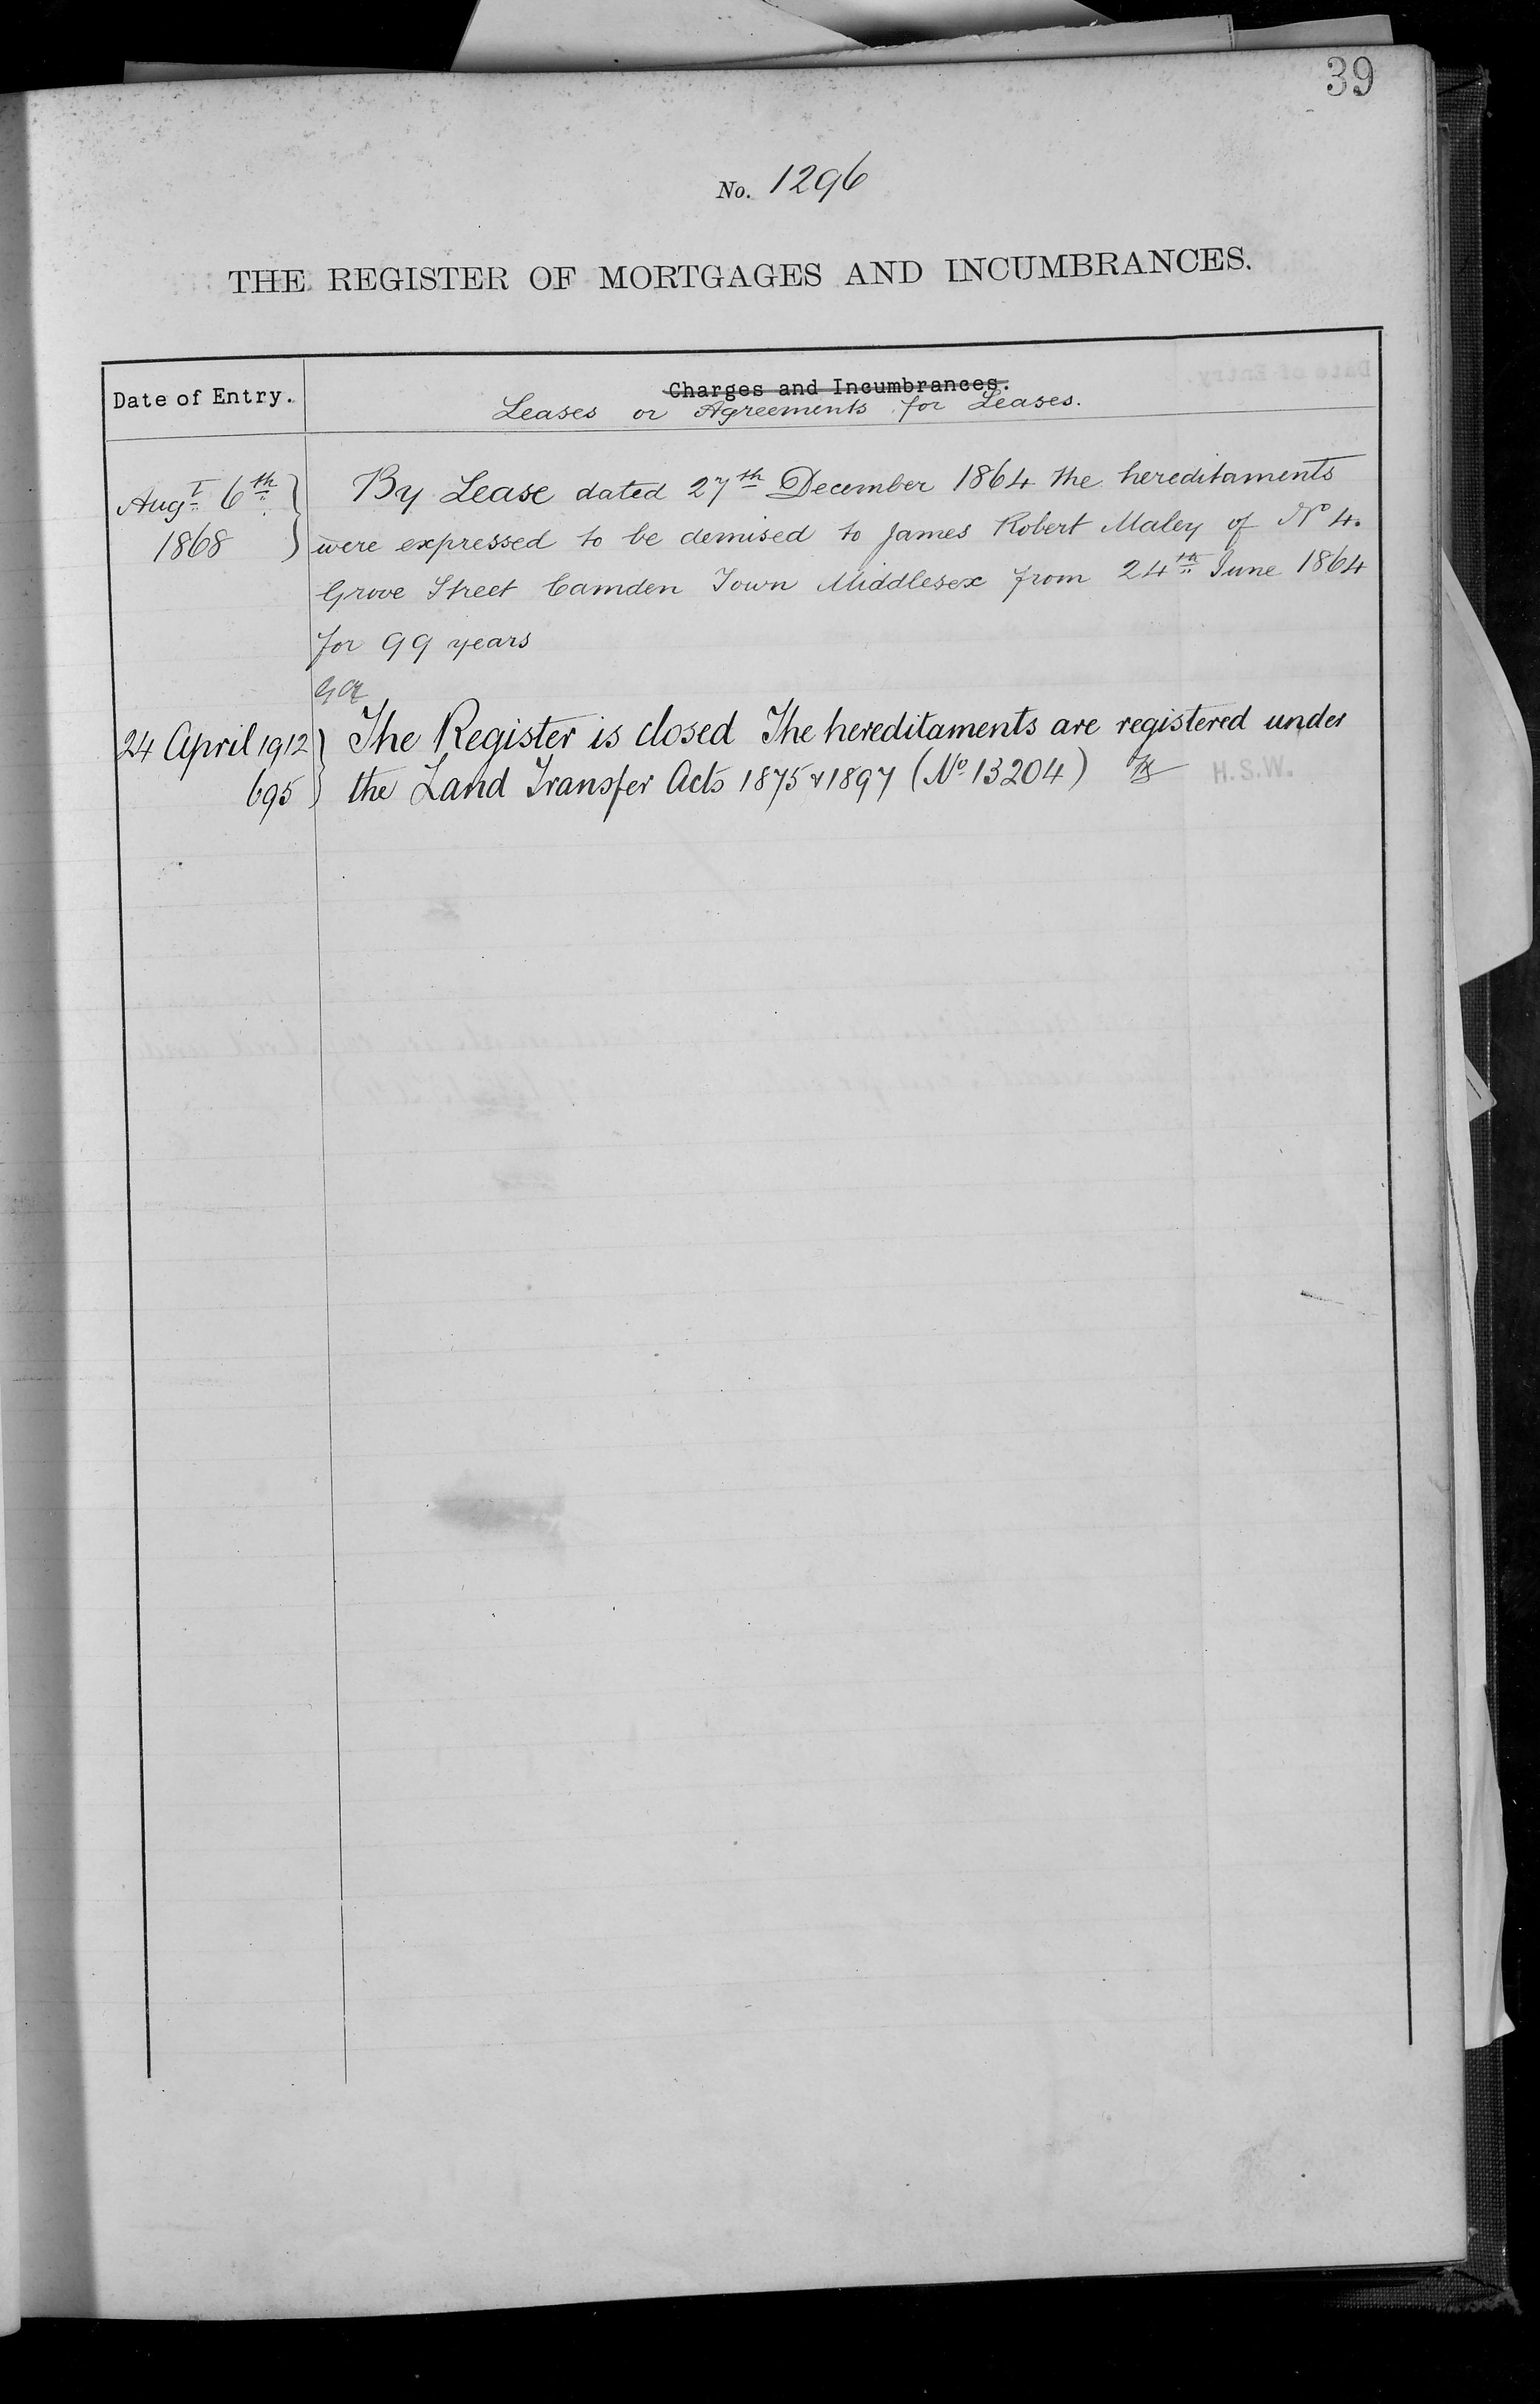 39
No. 1296
THE REGISTER OF MORTGAGES AND INCUMBRANCES.
Date of Entry.
Charges and Incumbrances.
Leases or Agreements for Leases.
Augt 6th
1868
By Lease dated 27th December 1864 the hereditaments
were expressed to be demised to James Robert Maley of No 4.
Grove Street Camden Town Middlesex from 24th June 1864
for 99 years
24 April 1912
695
The Register is closed The hereditaments are registered under
the Land Transfer Acts 1875 & 1897 (No 13204) H.S.W.